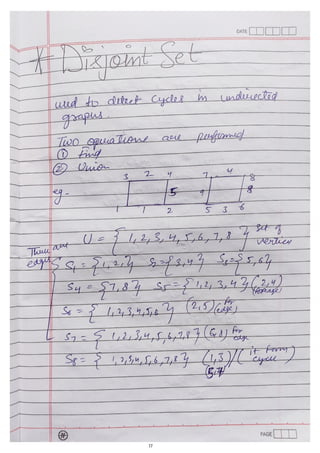 DATE
* Disjoint Set
used to detect cycles in undirected
graphs.
Two operations are performed
① find
② Union
3 2 4 7 4 8
eg. 5 9 8
1 1 2 5 3 6
U = { 1,2,3,4,5,6,7,8 } set of
vertices
There are
edges
S1 = {1,2} S2 = {3,4} S3 = {5,6}
S4 = {7,8} S5 = {1,2,3,4} (2,4)
S6 = { 1,2,3,4,5,6 } (2,5) (for edge)
S7 = { 1,2,3,4,5,6,7,8 } (5,8) for
edge
S8 = { 1,2,3,4,5,6,7,8 } (1,3) / ( it forms
cycle )
(5,7)
PAGE
17